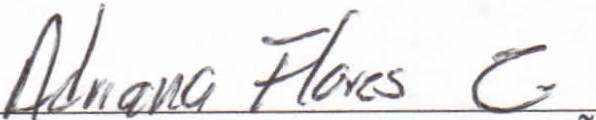 Adriana Flores C.